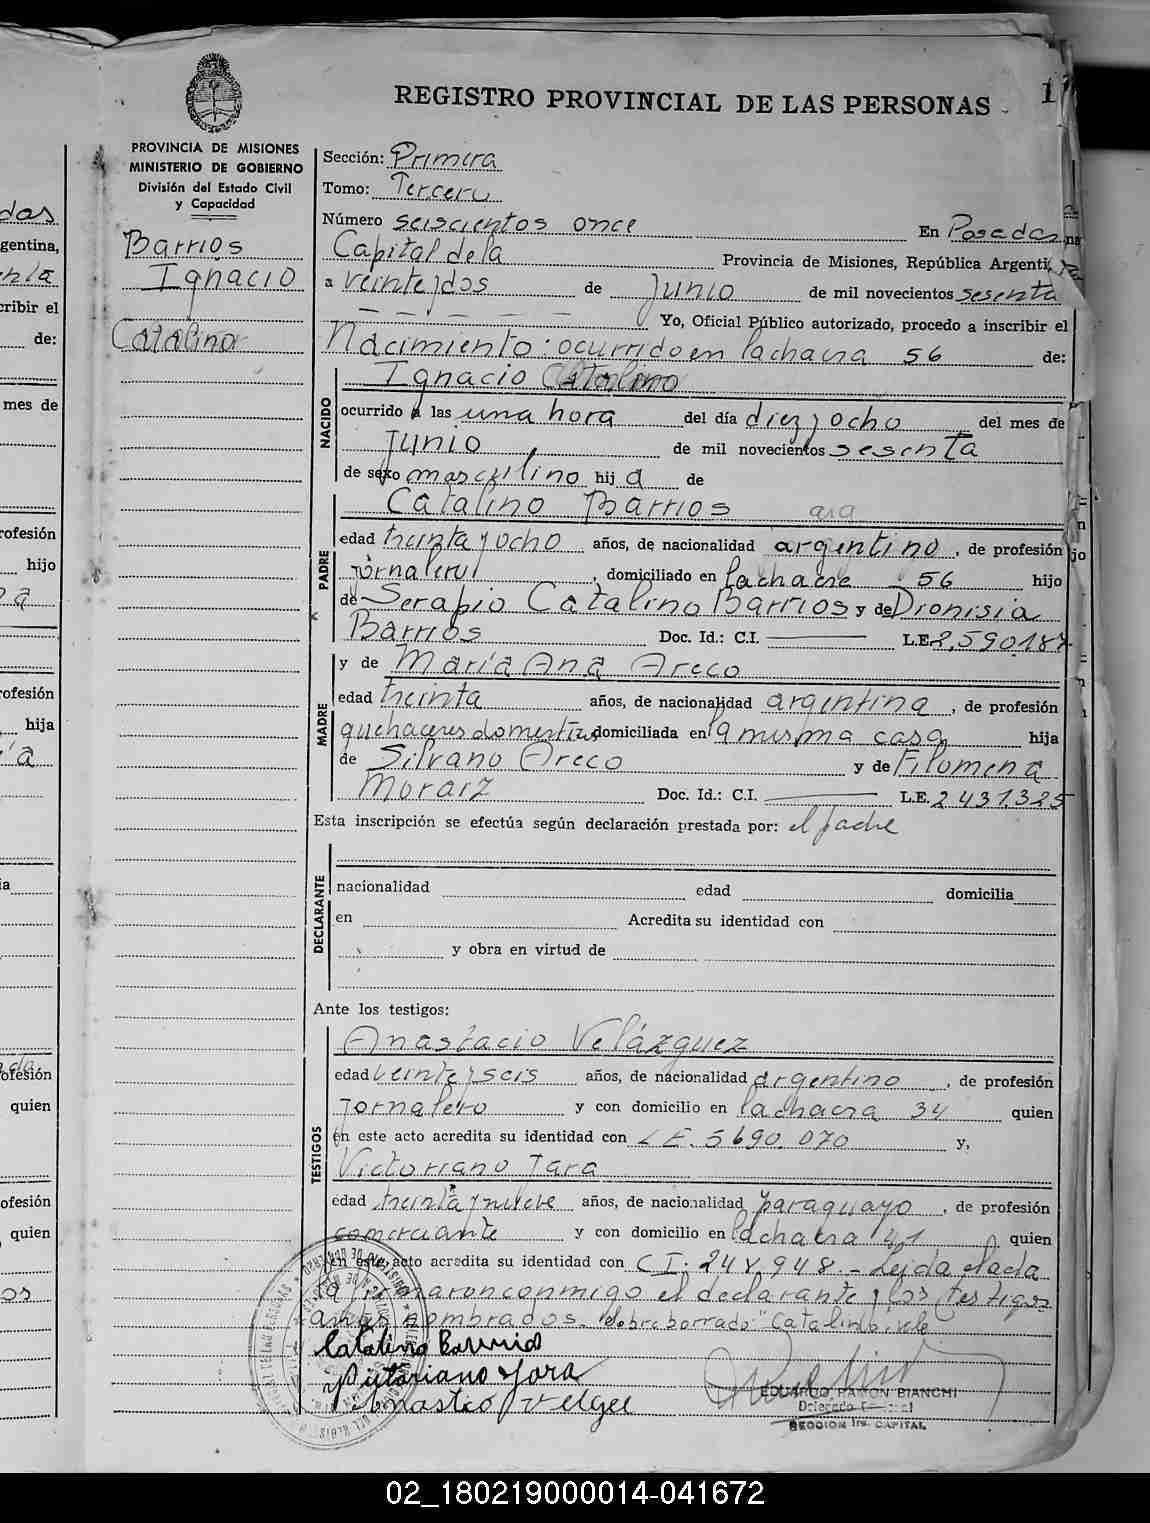 REGISTRO PROVINCIAL DE LAS PERSONAS
PROVINCIA DE MISIONES
MINISTERIO DE GOBIERNO
División del Estado Civil
y Capacidad
Barrios
Ignacio
Catalino
Sección: Primera
Tomo: Tercero
Número seiscientos once En Posadas
Capital de la Provincia de Misiones, República Argenti
a veinte y dos de Junio de mil novecientos sesenta
Yo, Oficial Público autorizado, procedo a inscribir el
Nacimiento: ocurrido en la chacra 56 de:
NACIDO
Ignacio Catalino
ocurrido a las una hora del día diez y ocho del mes de
Junio, de mil novecientos sesenta
de sexo masculino hij o de
PADRE
Catalino Barrios
edad treinta y ocho años, de nacionalidad argentino, de profesión
jornalero, domiciliado en la chacra 56 hijo
de Serapio Catalino Barrios y de Dionisia
Barrios Doc. Id.: C.I. L.E. 2.590.187
MADRE
y de María Ana Areco
edad treinta años, de nacionalidad argentina, de profesión
quehaceres domesticos domiciliada en la misma casa hija
de Silvano Areco y de Filomena
Doc. Id.: C.I. L.E. 2431325
Esta inscripción se efectúa según declaración prestada por: el padre
DECLARANTE
nacionalidad edad domicilia
en Acredita su identidad con
y obra en virtud de
Ante los testigos:
TESTIGOS
Anastacio Velázquez
edad veinte y seis años, de nacionalidad argentino, de profesión
Jornalero y con domicilio en la chacra 34 quien
en este acto acredita su identidad con L E. 5690.070 y,
Victoriano Jara
edad treinta y nueve años, de nacionalidad paraguayo, de profesión
comerciante y con domicilio en la chacra 41 quien
en este acto acredita su identidad con C I. 248.948 - Leida el acta
la firmaron conmigo el declarante y los testigos
antes nombrados. "Sobre borrado" Catalino: vale
Catalino Barrios
EDUARDO RAMON BIANCHI
SECCION 1ra. CAPITAL
02_180219000014-041672